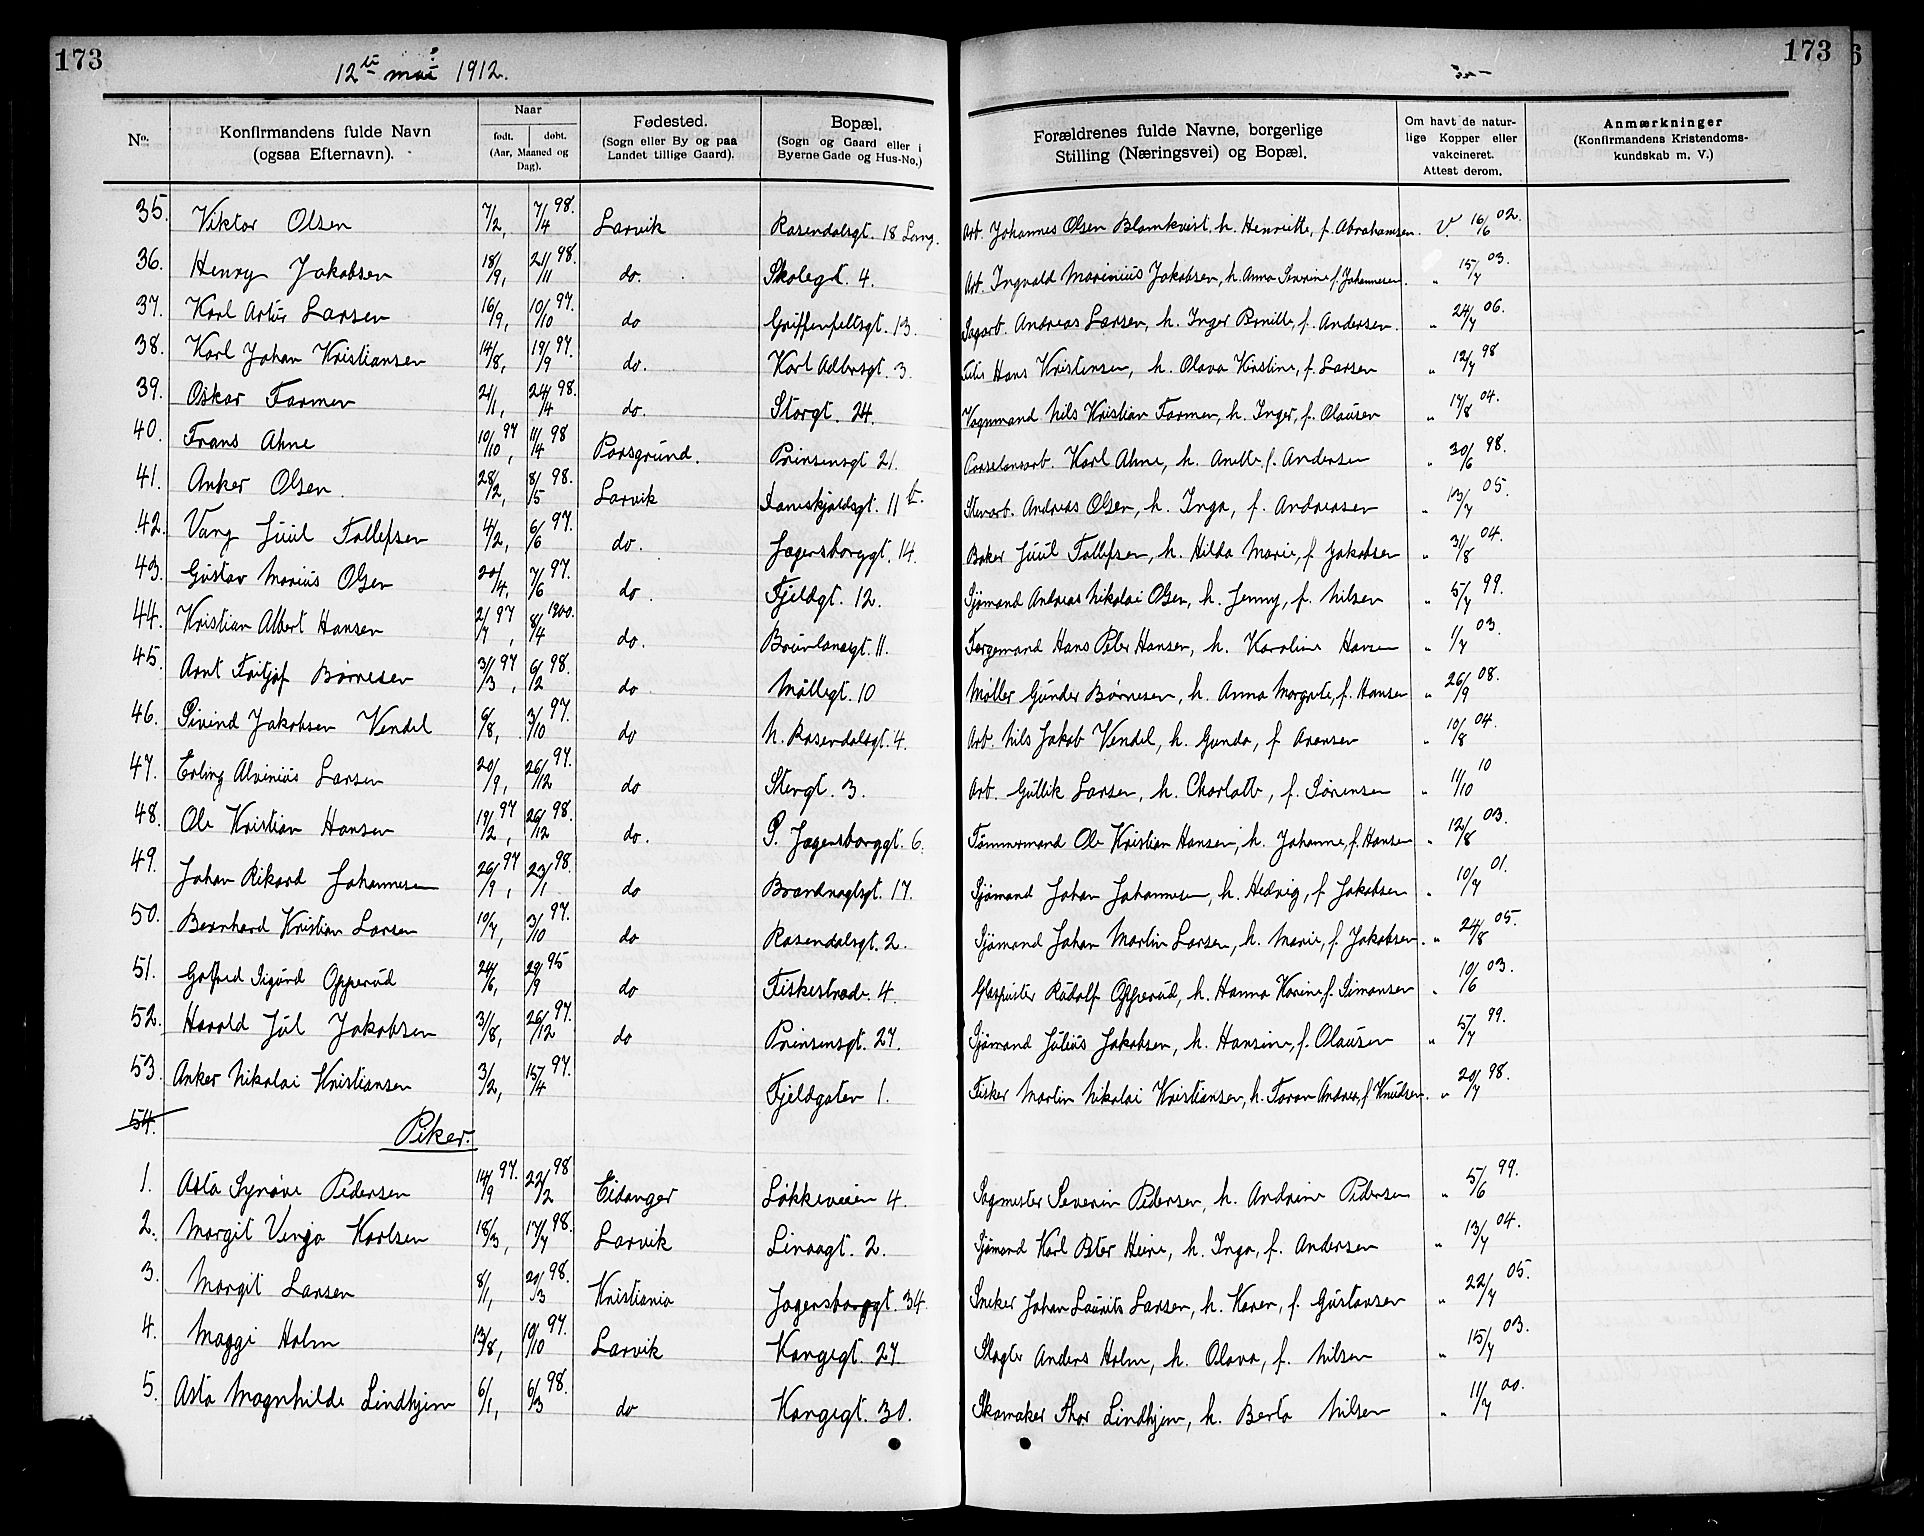 173
12te mai 1912.
No. Konfirmandens fulde Navn (ogsaa Efternavn). Naar født. døbt. (Aar, Maaned og Dag). Fødested. (Sogn eller By og paa Landet tillige Gaard). Bopæl. (Sogn og Gaard eller i Byerne Gade og Hus-No.)
173
Forældrenes fulde Navne, borgerlige Stilling (Næringsvei) og Bopæl. Om havt de naturlige Kopper eller vakcineret. Attest derom. Anmærkninger (Konfirmandens Kristendomskundskab m. V.)
35. Viktor Olsen 7/2, 7/4 98. Larvik Rosendalsgt. 18 Lang. Arb. Johannes Olsen Blomkvist, h. Henriette, f. Abrahamsen. V. 16/6 02.
36. Henry Jakobsen 18/9, 21/11 98. do. Skolegt. 4. Arb. Ingvald Marinius Jakobsen, h. Anna Severine f. Johannesen. " 15/7 03.
37. Karl Artur Larsen 16/9, 10/10 97. do Griffenfeltsgt. 13. Sagarb. Andreas Larsen, h. Inger Bernille, f. Andersen. " 24/7 06.
38. Karl Johan Kristiansen 14/8, 19/9 97. do. Karl Adlersgt. 3. Hans Kristensen, h. Olava Kirstine, f. Larsen " 12/7 98
39. Oskar Farmen 21/1, 24/4 98. do. Storgt. 24. Vognmand Nils Kristian Farmen, h. Inger, f. Olausen " 17/8 04.
40. Frans Ahne 10/10 97, 11/4 98 Porsgrund. Prinsensgt 21. Porselensarb. Karl Ahne, h. Anette f. Andersen " 30/6 98.
41. Anker Olsen. 28/2, 8/5 98. Larvik Daneskjoldsgt. 11 b. Stenarb. Andreas Olsen, h. Inga, f. Andreasen " 13/7 05.
42. Varg Juul Tollefsen 4/2, 6/6 97. do. Jegersborggt. 14. Baker Juul Tollefsen, h. Hilda Marie, f Jakobsen " 31/8 04.
43. Gustav Marius Olsen 20/4, 7/6 97. do. Fjeldgt. 12. Sjømand Andreas Nikolai Olsen, h. Jenny, f. Nilsen " 5/7 99.
44. Kristian Albert Hansen 2/7 97, 8/4 1900. do. Brunlanesgt. 11. Færgemand Hans Peter Hansen, h. Karoline Hansen " 1/7 03.
45. Arnt Fritjof Børresen 31/3 97, 6/12 98. do Møllegt. 10 Møller Gunder Børresen, h. Anna Margrete, f. Hansen " 26/9 08.
46. Eivind Jakobsen Vendel 6/8, 3/10 97. do N. Rosendalsgt. 4. Arb. Nils Jakob Vendel, h. Gunda, f Aronsen " 10/8 04.
47. Erling Alvinius Larsen 20/9, 26/12 97. do Stengt. 3. Arb. Gullik Larsen, h. Charlotte, f. Sørensen " 11/10 10
48. Ole Kristian Hansen 19/2 97, 26/12 98. do. P. Jegersborggt. 6. Tømmermand Ole Kristian Hansen, h. Johanne, f. Hansen " 12/8 03.
49. Johan Rikard Johannesen 26/9 97, 23/1 98. do Brandvagtsgt. 17. Sjømand Johan Johannesen, h. Hedvig, f Jakobsen " 10/7 01.
50. Bernhard Kristian Larsen 10/7, 3/10 97. do Rosendalsgt. 2. Sjømand Johan Martin Larsen, h. Marie, f. Jakobsen. " 24/8 05.
51. Gotfred Sigurd Opperud 24/6, 29/9 95 do Fiskestræde. 4. Glaspuster Rudolf Opperud, h. Hanna Karine f. Simonsen " 10/6 03.
52. Harald Jul Jakobsen 31/8, 26/12 97. do Prinsensgt. 27. Sjømand Julius Jakobsen, h. Hansine, f. Olausen " 5/7 99.
53. Anker Nikolai Kristiansen 3/2, 15/4 97. Fjeldgaten 1. Fisker Martin Nikolai Kristiansen, h. Toran Andrea, f Knudsen. " 20/7 98.
54.
Piker.
1. Asta Synøve Pedersen 14/9 97. 22/2 98 Eidanger Løkkeveien 4. Sagmester Severin Pedersen, h. Andrine Pedersen " 5/6 99.
2. Margit Venja Karlsen 18/3, 17/7 98. Larvik Linaagt. 2. Sjømand Karl Peter Heire, h. Inga, f. Andersen " 13/7 04.
3. Margit Larsen 8/1, 20/3 98. Kristiania Jegersborggt. 34. Sneker Johan Laurits Larsen, h. Karen, f. Gustavsen " 22/7 05.
4. Maggi Holm 13/8, 19/10 97. Larvik Kongegt. 27. Slagter Anders Holm, h. Olava, f. Nilsen " 15/7 03.
5. Asta Magnhilde Lindhjem 6/1, 6/3 98. do Kongegt. 30. Skomaker Thor Lindhjem, h. Berta Nilsen " 11/7 00.